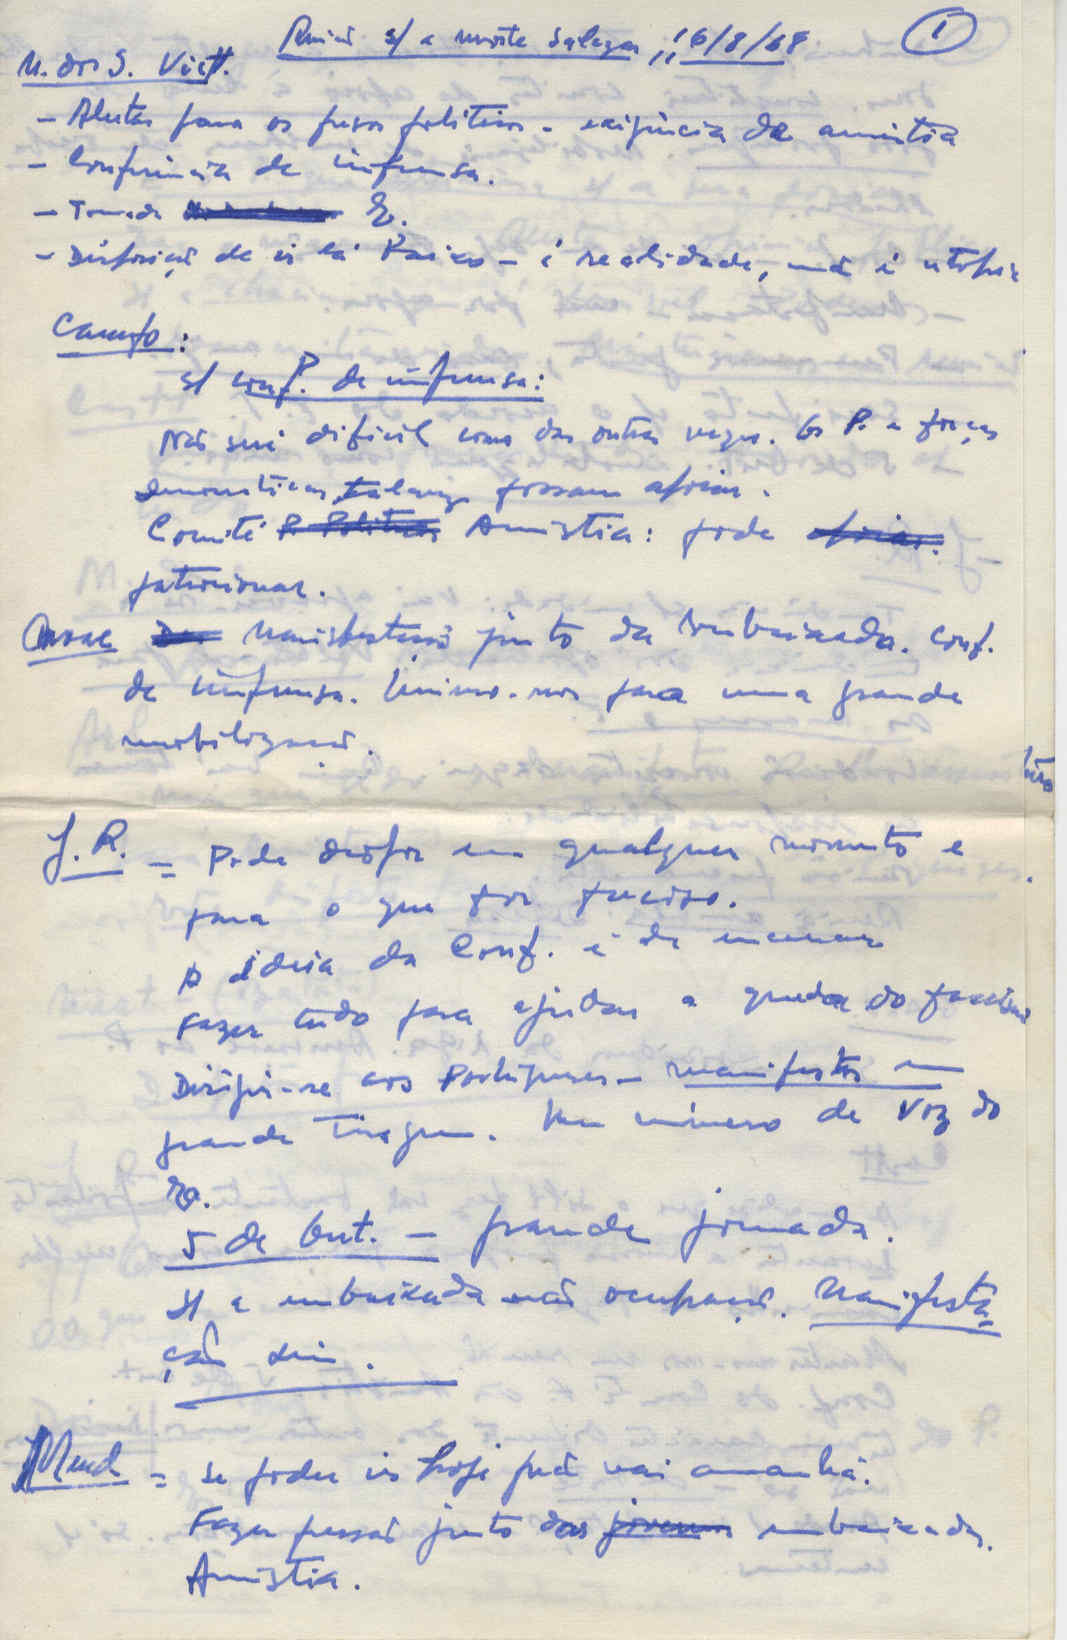 Reunião s/ a morte Salazar, 16/8/68
1
M. dos S. Vict.
- Alertar para os presos políticos - exigência da amnistia
- Conferência de imprensa.
- Tomada
- Disposição de ir lá - é realidade, não é utopia
Campo:
s/ conf. de imprensa:
Não será difícil como das outras vezes. Os P. e forças
democráticas, talvez possam apoiar.
Comité P. Políticos Amnistia: pode apoiar.
patrocinar.
Manifestação junto da embaixada. Conf.
de imprensa. Unirmo-nos para uma grande
mobilização.
J. R. = Pode dispor em qualquer momento e
para o que for preciso.
A ideia da Conf. é de
Fazer tudo para ajudar a queda do fascismo
Dirigir-se aos Portugueses - manifestos em
grande tiragem. Um número de Voz do
5 de Out. - grande jornada.
s/ a embaixada não ocupação. Manifesta-
ção sim.
Mend = se poder ir hoje não vai amanhã.
Fazer pressão junto das jovens embaixadas.
Amnistia.